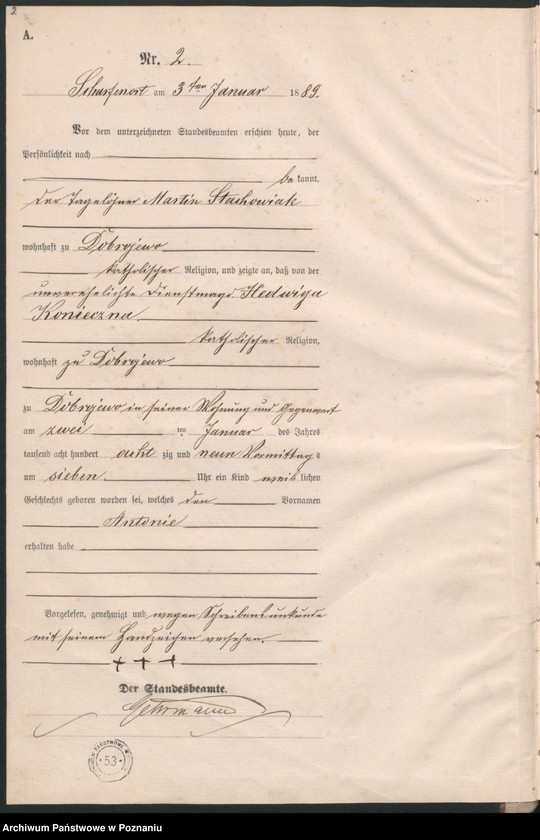 2
A.
Nr. 2.
Scharfenort am 3ten Januar 1889.
Vor dem unterzeichneten Standesbeamten erschien heute, der
Persönlichkeit nach
bekannt,
der Tagelöhner Martin Stachowiak
wohnhaft zu Dobrojewo
katholischer Religion, und zeigte an, daß von der
unverehelichte Dienstmagd Hedwiga
Konieczna.
katholischer Religion,
wohnhaft zu Dobrojewo
zu Dobrojewo in seiner Wohnung und Gegenwart
am zwei ten Januar des Jahres
tausend acht hundert acht zig und neun Vormittags
um sieben Uhr ein Kind weiblichen
Geschlechts geboren worden sei, welches den Vornamen
Antonie
erhalten habe
Vorgelesen, genehmigt und wegen Schreibensunkunde
mit seinem Handzeichen versehen.
+ + +
Der Standesbeamte.
53
Archiwum Państwowe w Poznaniu